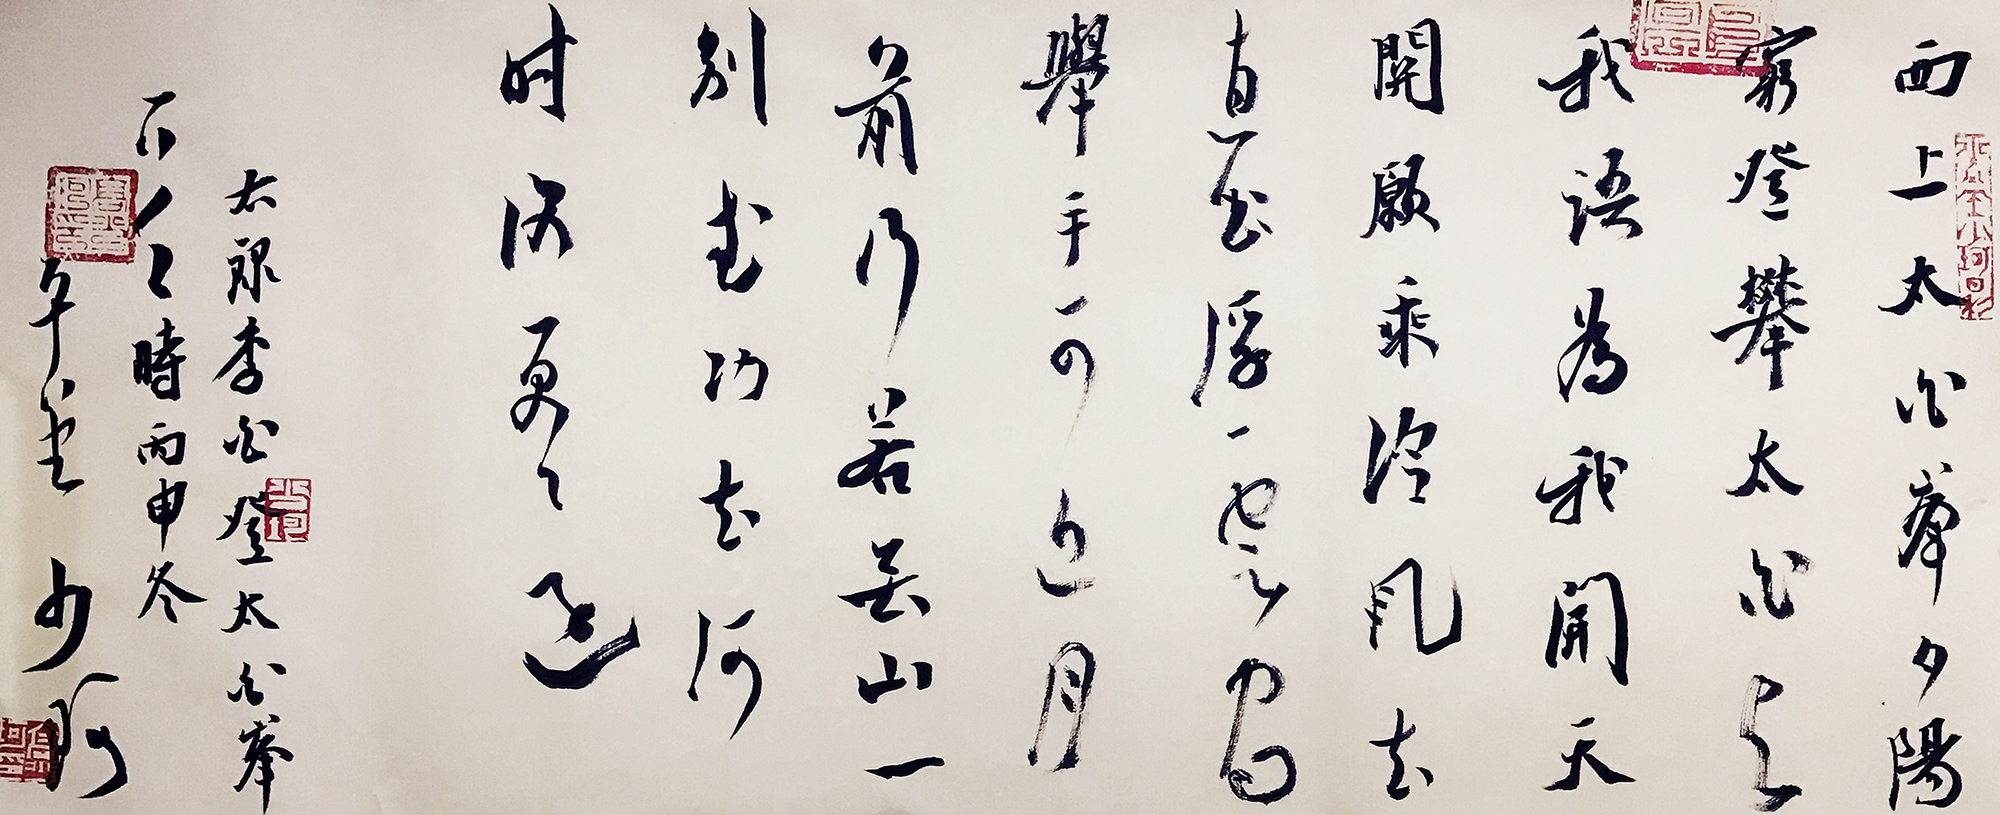 西上太白峯夕陽
窮登攀太白與
我語為我開天
關願乘泠風去
直出浮雲間
舉手可近月
前行若無山一
別武功去何
时復更還
太白峯
右録李白登太白峯
不人人時丙申冬
少珂